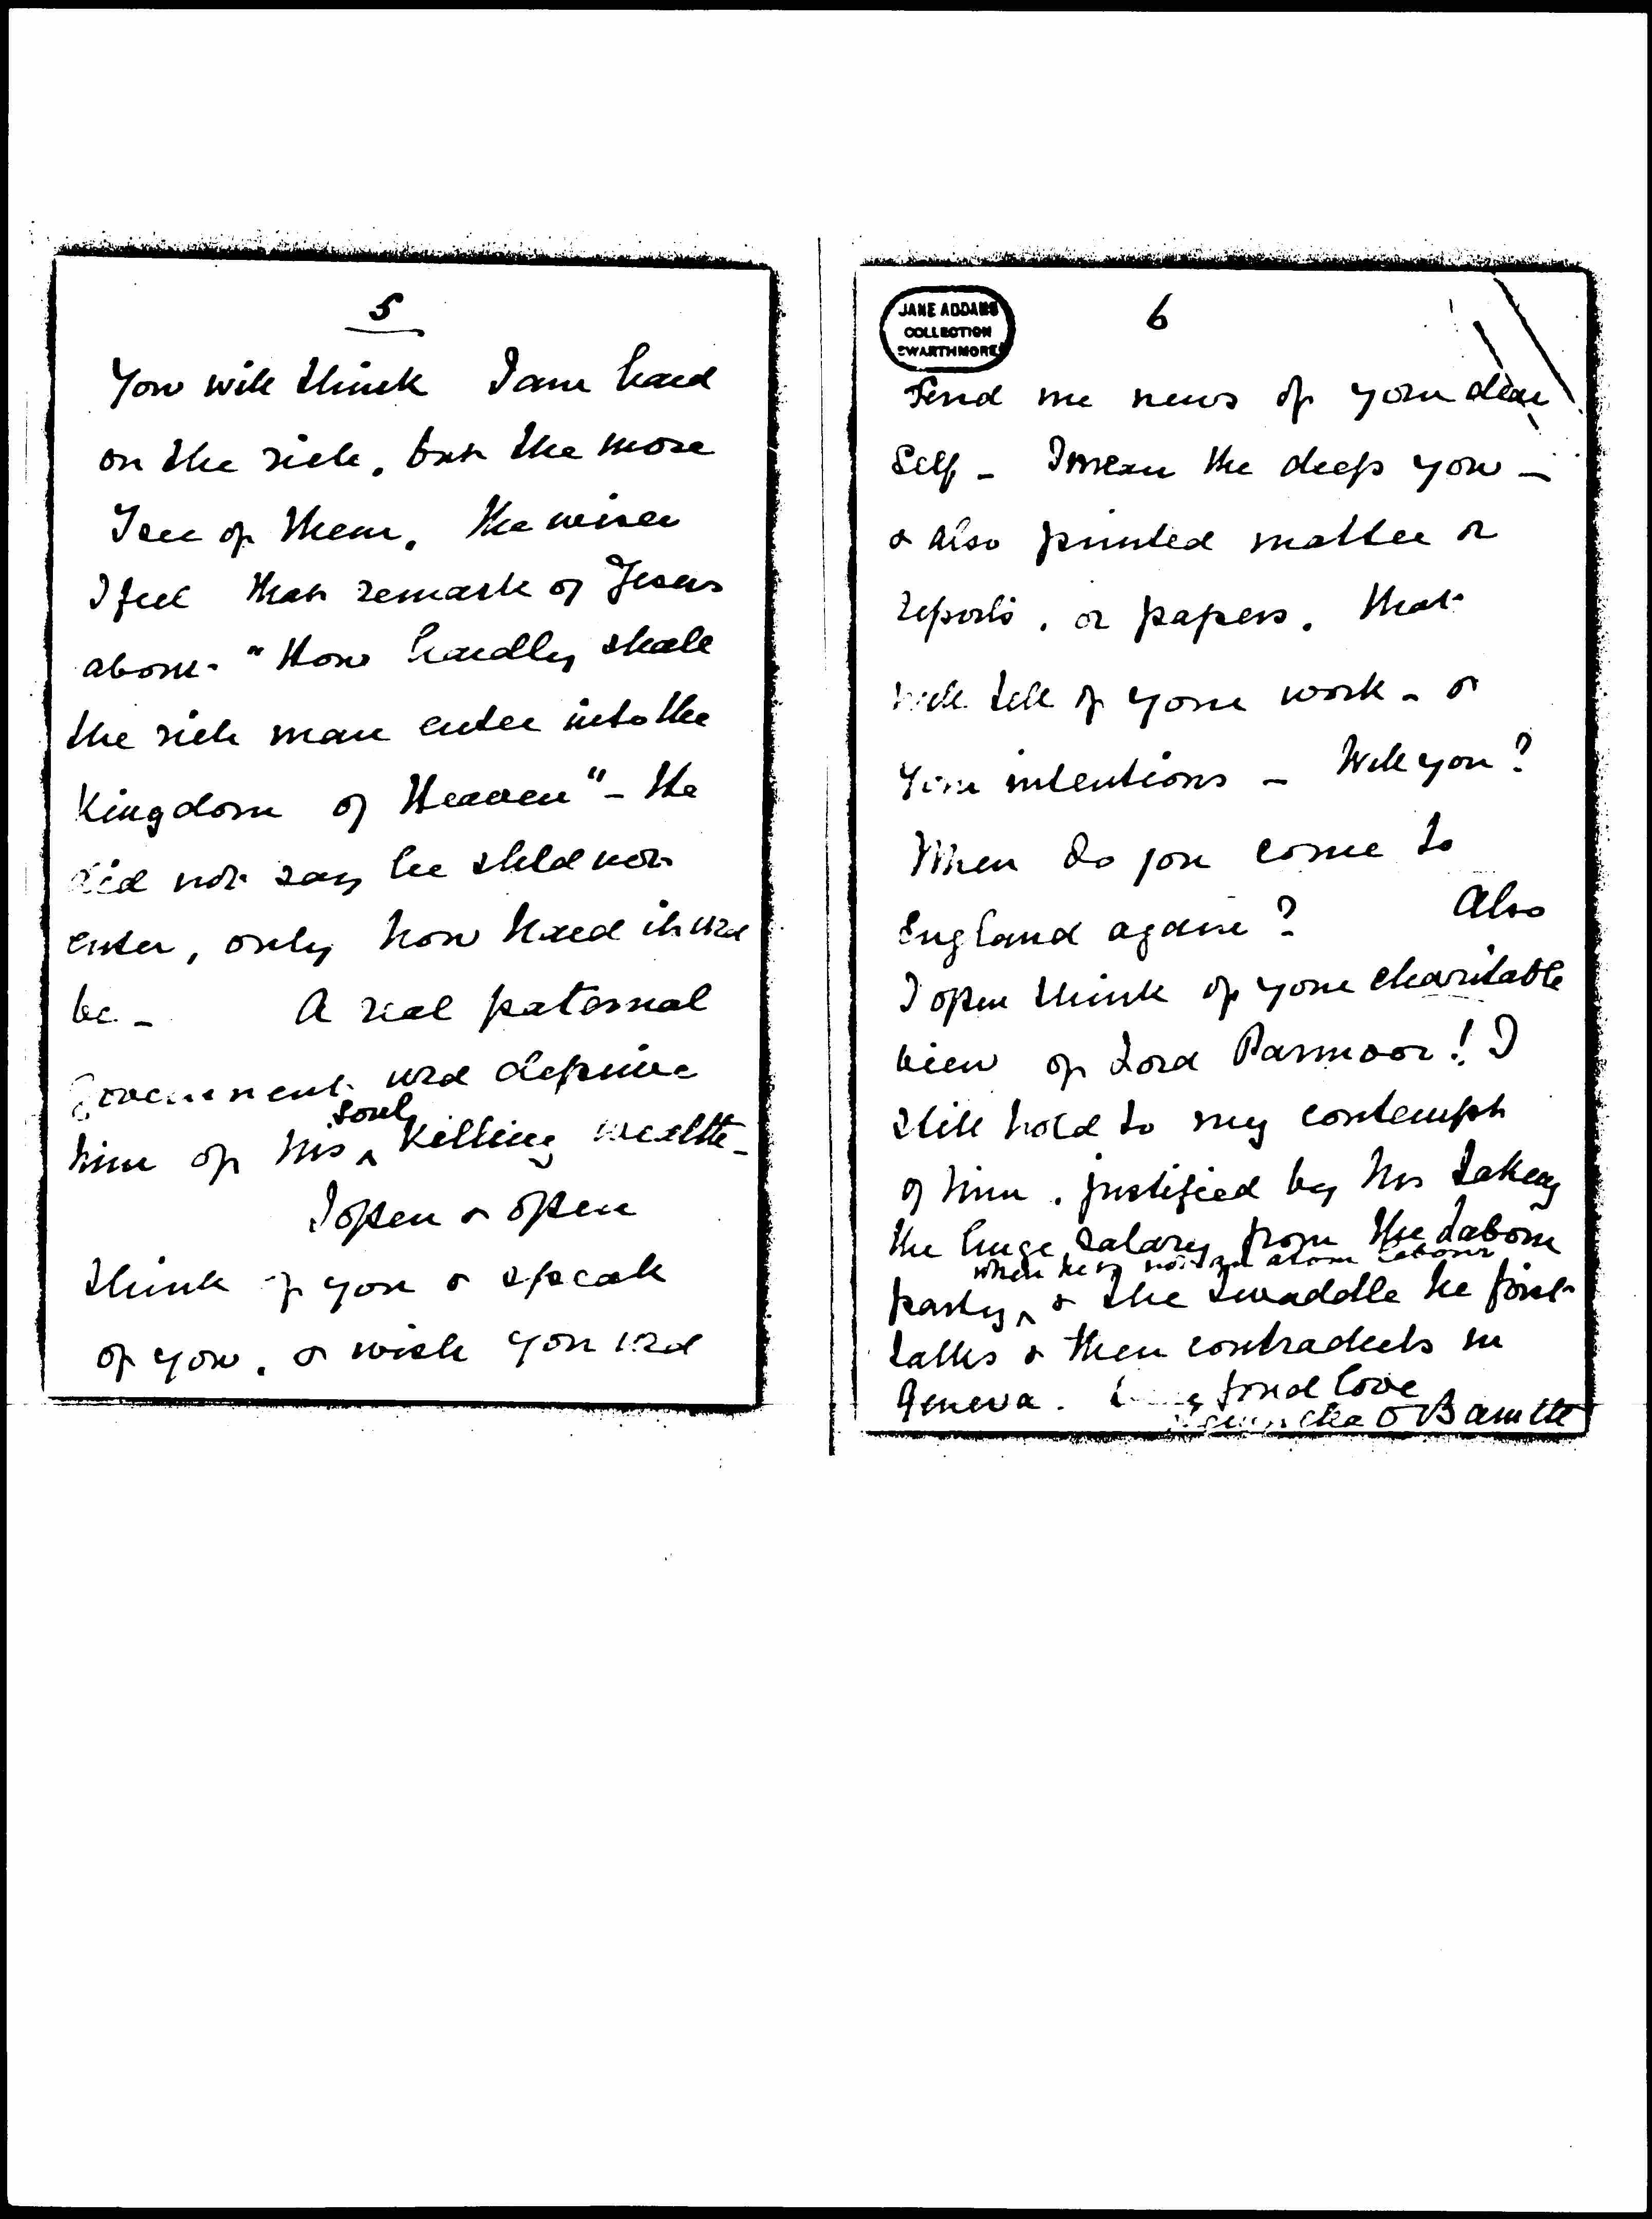 5
You will think I am hard
on the rich, but the more
I see of them, the wiser
I feel that remark of Jesus
about "How hardly shall
the rich man enter into the
Kingdom of Heaven" - He
did not say he shld not
enter, only how hard it wld
be - A real paternal
Government wld deprive
him of his ^ soul killing wealth -
I often & often
think of you & speak
of you, & wish you wld
JANE ADDAMS
COLLECTION
SWARTHMORE
6
send me news of your dear
Self - I mean the deep you -
& also printed matter or
reports, or papers, that
will tell of your work - or
your intentions - Will you?
When do you come to
England again? Also
I often think of your charitable
view of Lord Parmoor! I
still hold to my contempt
of him, justified by his taking
the huge salary from the Labour
when he is not an atom Labour
party ^ & the twaddle he first
talks & then contradicts in
Geneva. fond love
O Barnett